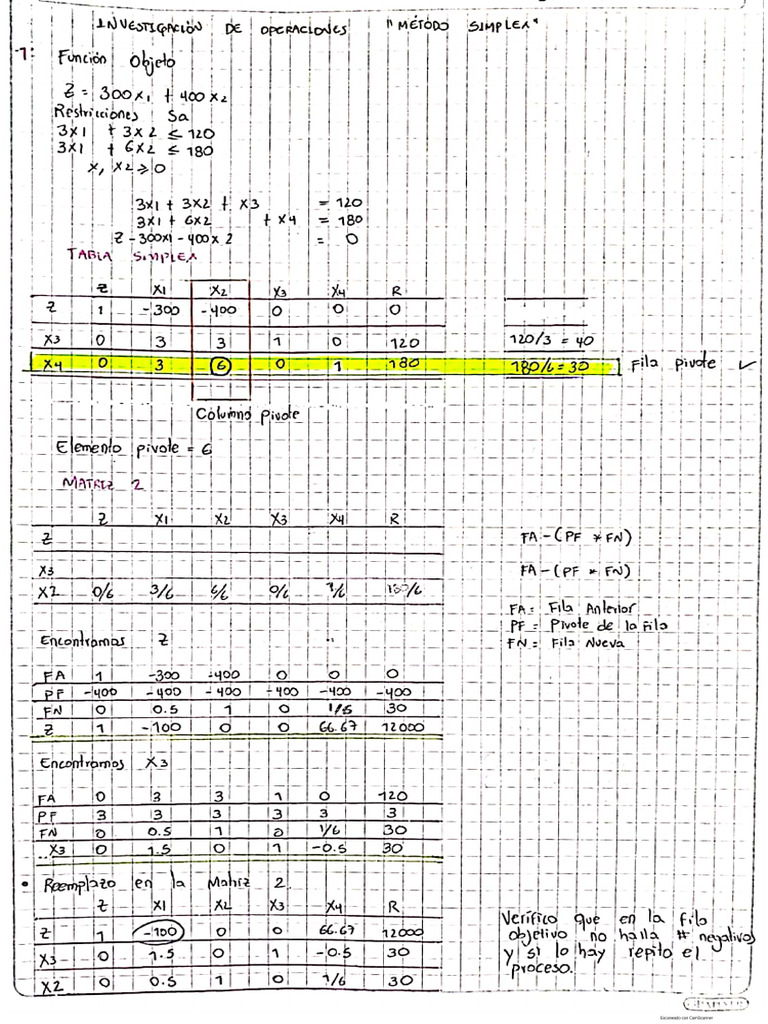 INVESTIGACIÓN DE OPERACIONES "MÉTODO SIMPLEX"
1:
Función Objeto
Z = 300x1 + 400x2
Restricciones Sa
3x1 + 3x2 ≤ 120
3x1 + 6x2 ≤ 180
x, x2 ≥ 0
3x1 + 3x2 + x3 = 120
3x1 + 6x2 + x4 = 180
Z - 300x1 - 400x2 = 0
TABLA SIMPLEX
Z X1 X2 X3 X4 R
Z 1 -300 -400 0 0 0
X3 0 3 3 1 0 120 120/3 = 40
X4 0 3 6 0 1 180 180/6 = 30 Fila pivote ✓
Columna pivote
Elemento pivote = 6
MATRIZ 2
Z X1 X2 X3 X4 R
Z FA - (PF * FN)
X3 FA - (PF * FN)
X2 0/6 3/6 6/6 0/6 1/6 180/6
FA = Fila Anterior
PF = Pivote de la Fila
FN = Fila Nueva
Encontramos Z
FA 1 -300 -400 0 0 0
PF -400 -400 -400 -400 -400 -400
FN 0 0.5 1 0 1/5 30
Z 1 -100 0 0 66.67 12000
Encontramos X3
FA 0 3 3 1 0 120
PF 3 3 3 3 3 3
FN 0 0.5 1 0 1/6 30
X3 0 1.5 0 1 -0.5 30
• Reemplazo en la Matriz 2.
Z X1 X2 X3 X4 R
Z 1 -100 0 0 66.67 12000
X3 0 1.5 0 1 -0.5 30
X2 0 0.5 1 0 1/6 30
Verifico que en la fila
objetivo no halla # negativos
y si lo hay repito el
proceso.
Escaneado con CamScanner